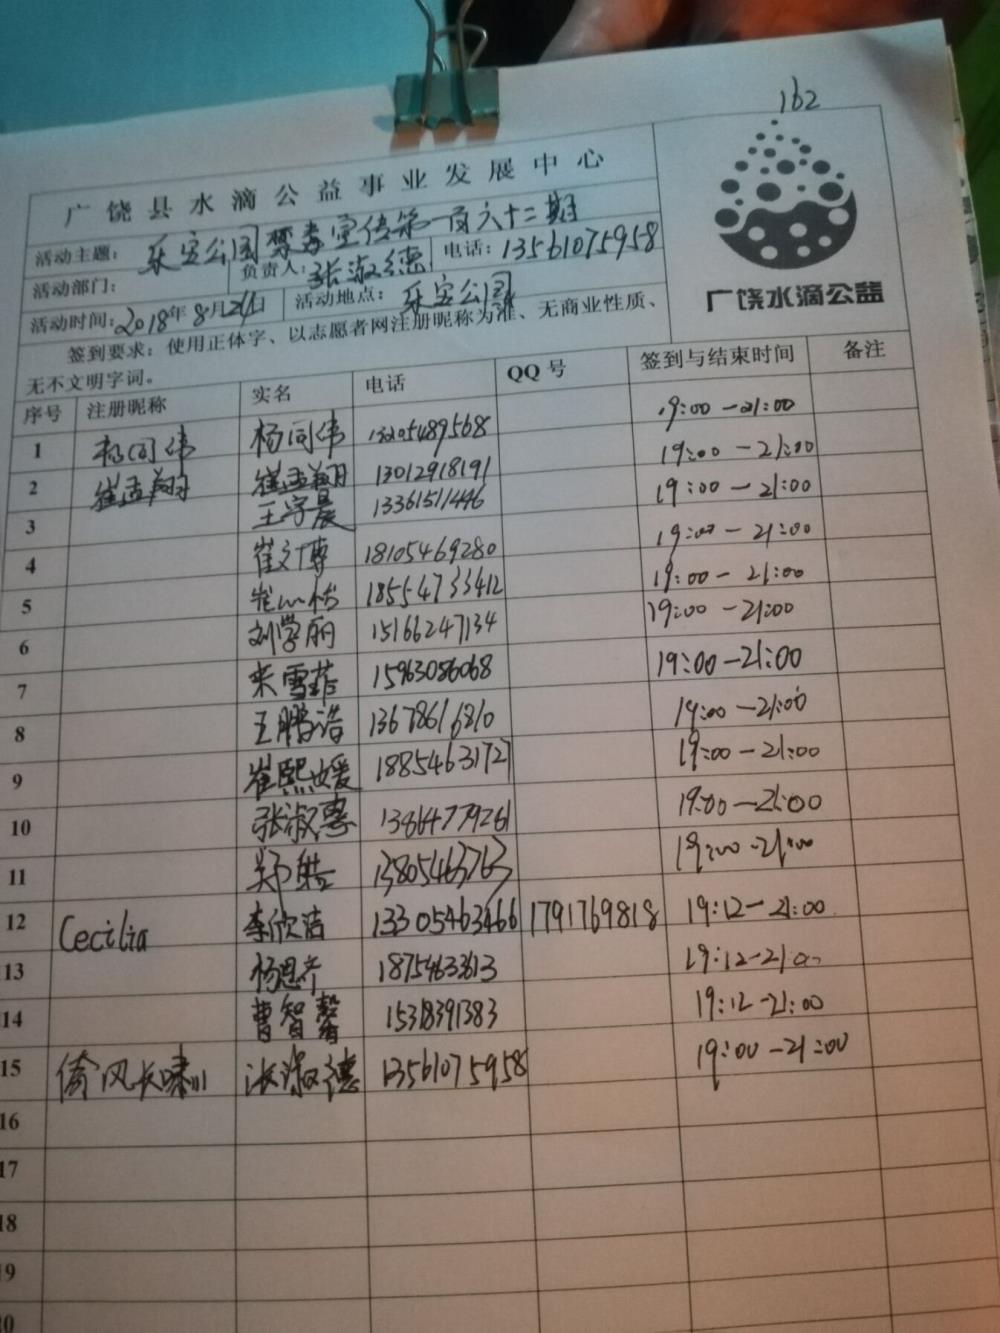 162
广饶县水滴公益事业发展中心
活动主题：乐安公园禁毒宣传第一百六十二期
活动部门： 负责人：张淑德 电话：13561075958
活动时间：2018年8月21日 活动地点：乐安公园
签到要求：使用正体字、以志愿者网注册昵称为准、无商业性质、
无不文明字词。
广饶水滴公益
序号 注册昵称 实名 电话 QQ号 签到与结束时间 备注
1 杨同伟 杨同伟 13205489568 19:00-21:00
2 崔孟翔 崔孟翔 13012918191 19:00-21:00
3 王守晨 13361511446 19:00-21:00
4 崔文博 18105469280 19:00-21:00
5 18554733412 19:00-21:00
6 刘学丽 15166247134 19:00-21:00
7 宋雪菲 15963056068 19:00-21:00
8 王鹏浩 13678616810 19:00-21:00
9 崔熙媛 18854631727 19:00-21:00
10 张淑惠 13864779261 19:00-21:00
11 郑皓 13805463763 19:00-21:00
12 Cecilia 李欣洁 13305463466 1791769818 19:12-21:00
13 杨恩齐 18754633613 19:12-21:00
14 曹智馨 15318391383 19:12-21:00
15 倚风长啸 张淑德 13561075958 19:00-21:00
16
17
18
19